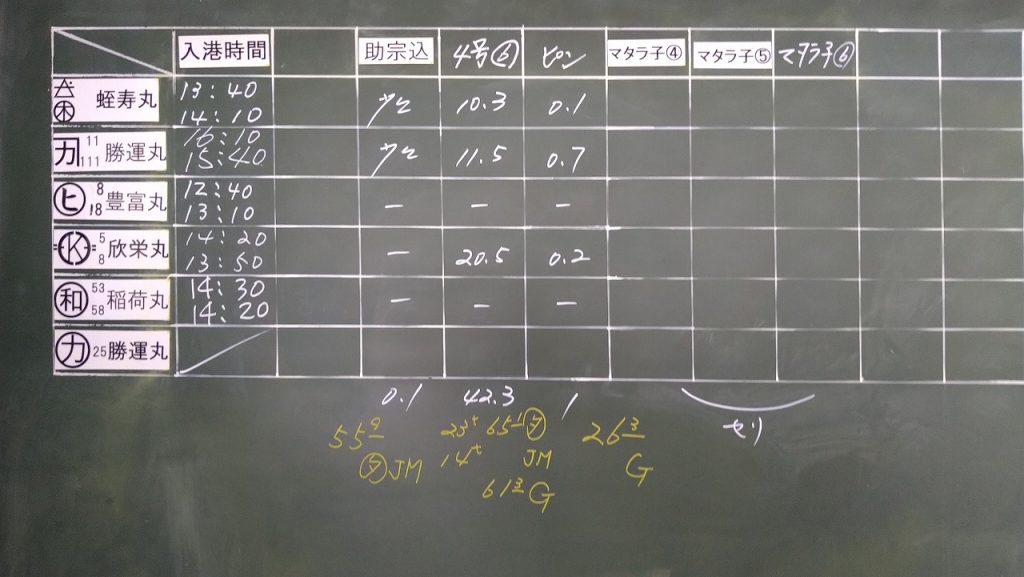 入港時間 助宗込 4号⑥ ピン マタラ子④ マタラ子⑤ マタラ子⑥
蛭寿丸 13:40 14:10 少々 10.3 0.1
カ 11 111 勝運丸 16:10 15:40 少々 11.5 0.7
ヒ 8 18 豊富丸 12:40 13:10 － － －
K 5 8 欣栄丸 14:20 13:50 － 20.5 0.2
和 53 58 稲荷丸 14:30 14:20 － － －
カ 25 勝運丸
0.1 42.3 1 セリ
55 9 23t 65 1 26 3
JM 14t JM G
61 3 G